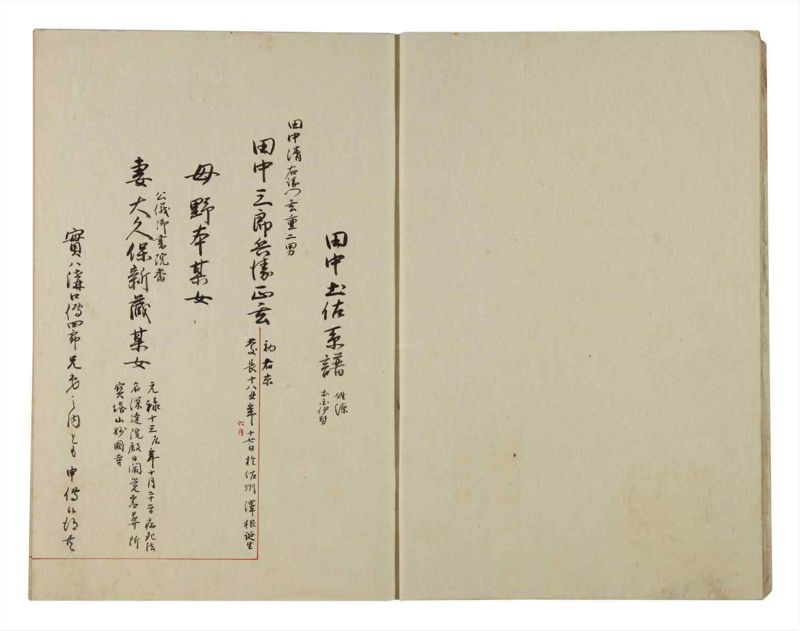 田中土佐系譜
姓源
本国伊勢
田中清右衛門玄重二男
田中三郎兵衛正玄
初右京
慶長十八丑年
六月
十七日於佐州澤根誕生
母野本某女
公儀御書院番
妻大久保新蔵某女
元禄十三辰年十月二十日病死法
名深達院殿日闡覚霊葬所
寶塔山妙國寺
實ハ溝口傳四郎兄弟之内とも申傳候